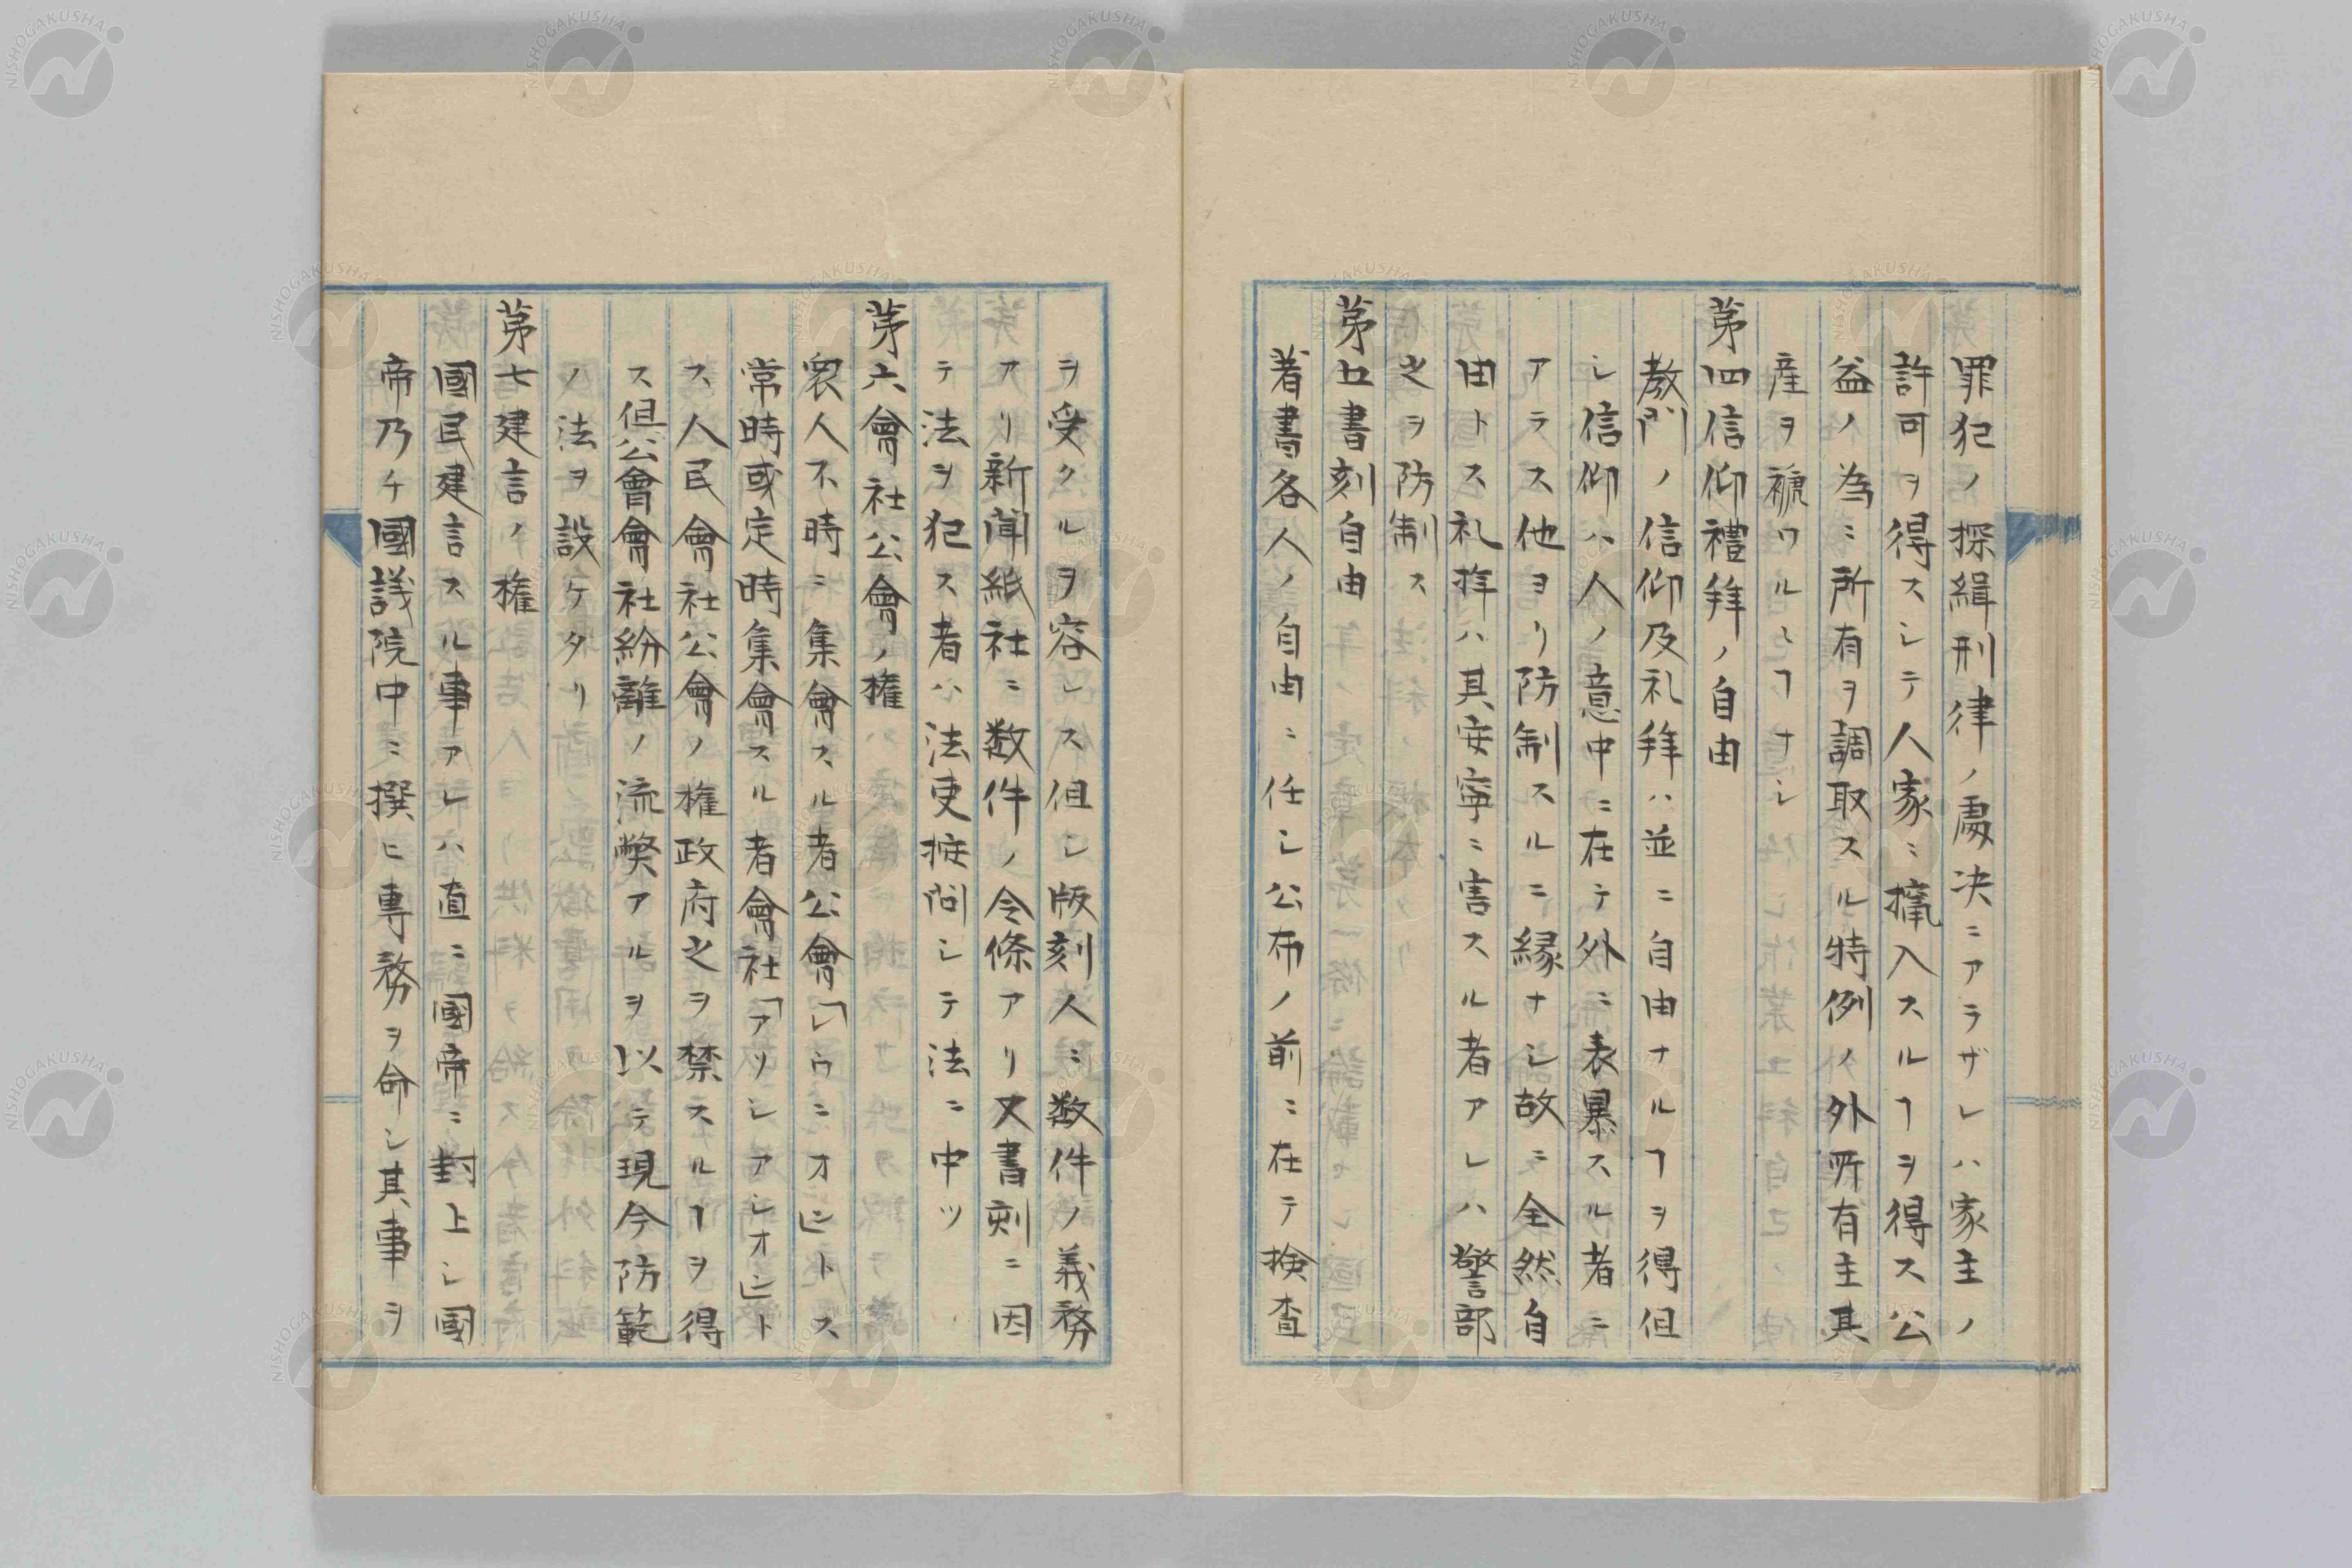 罪犯ノ探緝刑律ノ處决ニアラザレハ家主ノ
許可ヲ得スシテ人家ニ擅入スルヿヲ得ス公
益ノ為ニ所有ヲ調取スル特例ノ外所有主其
産ヲ褫ワルヽヿナシ
第四信仰禮拜ノ自由
教門ノ信仰及礼拜ハ並ニ自由ナルヿヲ得但
シ信仰ハ人ノ意中ニ在テ外ニ表暴スル者ニ
アラス他ヨリ防制スルニ縁ナシ故ニ全然自
由トス礼拜ハ其安寧ニ害スル者アレハ警部
之ヲ防制ス
第五書刻自由
著書各人ノ自由ニ任シ公布ノ前ニ在テ検査
ヲ受クルヲ容レス但シ版刻人ニ数件ノ義務
アリ新聞紙社ニ数件ノ令條アリ又書刻ニ因
テ法ヲ犯ス者ハ法吏按問シテ法ニ中ツ
第六會社公會ノ権
衆人不時ニ集會スル者公會「レウニオン」トス
常時或定時集會スル者會社「アソシアシオン」ト
ス人民會社公會ノ権政府之ヲ禁スルヿヲ得
ス但公會會社紛離ノ流弊アルヲ以テ現今防範
ノ法ヲ設ケタリ
第七建言ノ権
國民建言スル事アレハ直ニ國帝ニ封上シ國
帝乃チ國議院中ニ撰ヒ専務ヲ命シ其事ヲ
NISHOGAKUSHA